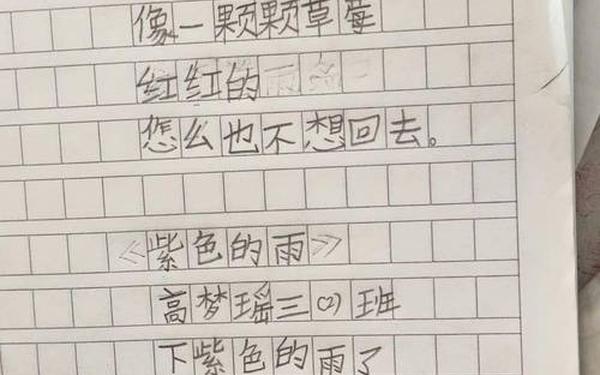 像一颗颗草莓
红红的
怎么也不想回去。
《紫色的雨》
高梦瑶三(2)班
下紫色的雨了